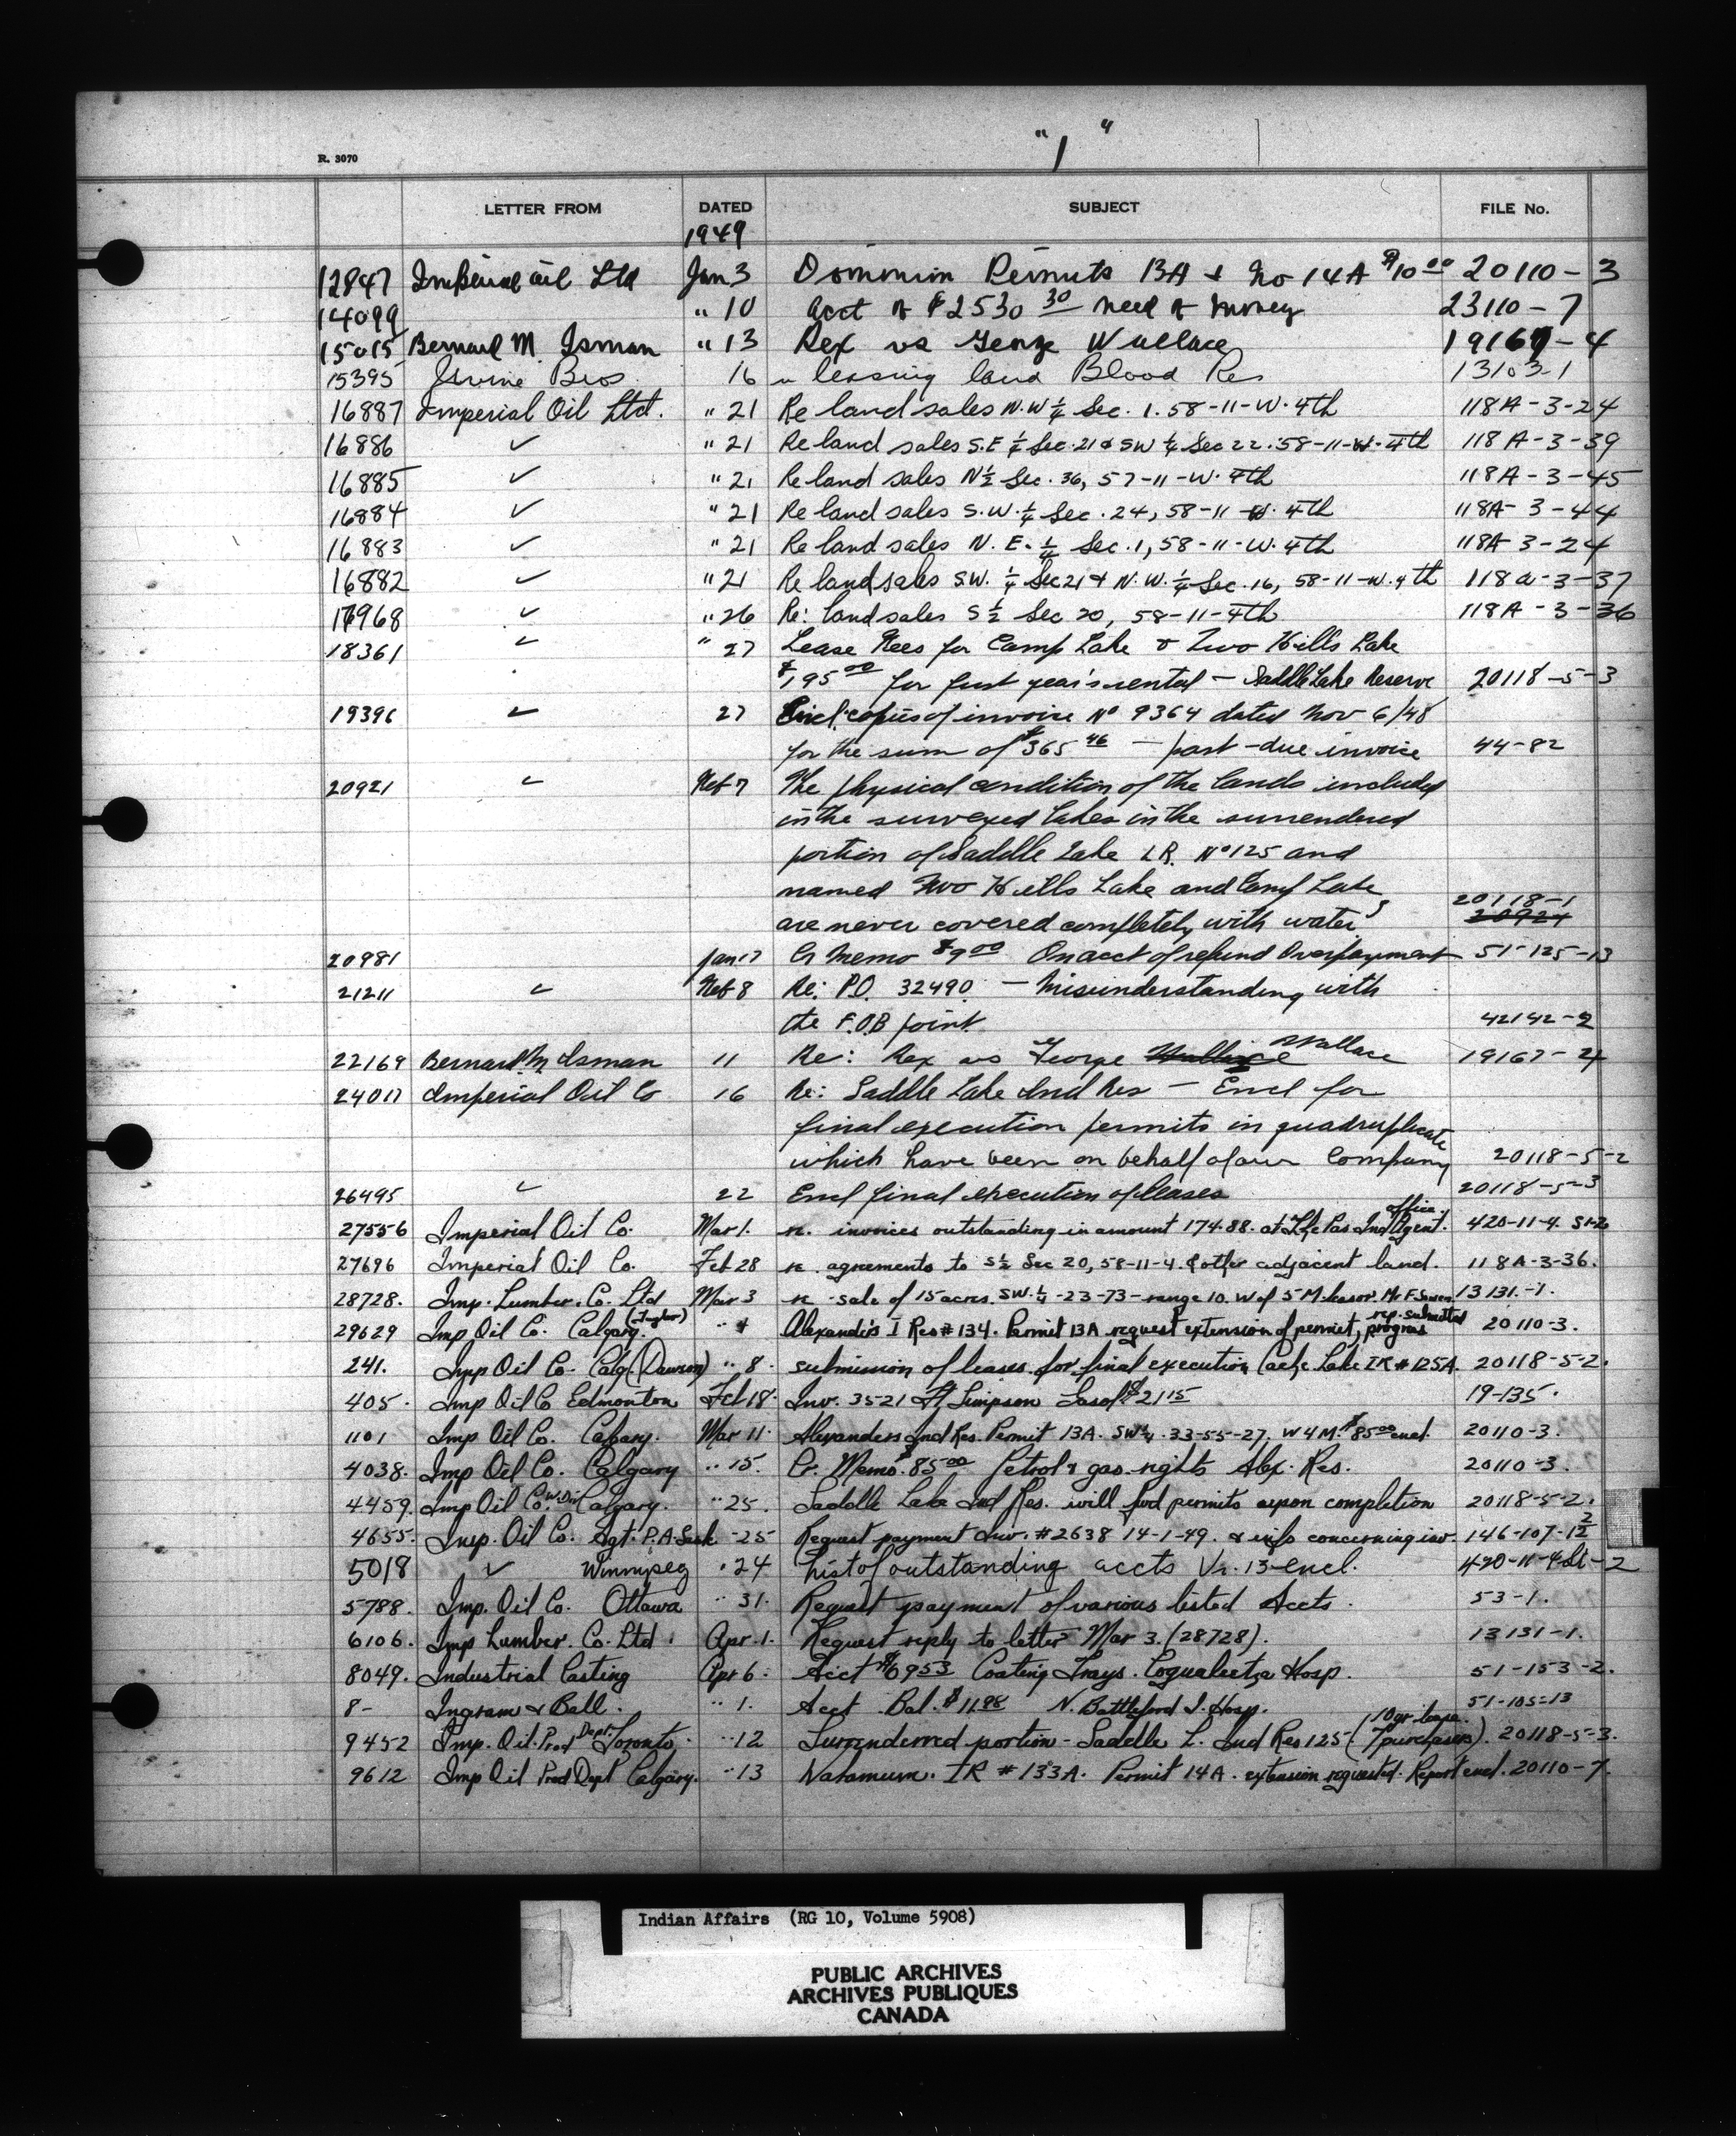 "1"
R. 3070
LETTER FROM DATED SUBJECT FILE No.
1949
12847 Imperial Oil Ltd Jan 3 Dominion Permits 13A & No 14A $10.00 20110-3
14099 " 10 Acct of $2530 30 need of money 23110-7
15015 Bernard M. Isman " 13 Rex vs George Wallace 19167-4
15395 Irvine Bros 16 leasing land Blood Res 13103-1
16887 Imperial Oil Ltd. " 21 Re land sales N.W ¼ Sec. 1. 58-11-W. 4th 118A-3-24
16886 ✓ " 21 Re land sales S.E ¼ Sec. 21 & SW ¼ Sec 22. 58-11-W. 4th 118A-3-39
16885 ✓ " 21 Re land sales N½ Sec. 36, 57-11-W. 4th 118A-3-45
16884 ✓ " 21 Re land sales S.W. ¼ Sec. 24, 58-11-W. 4th 118A-3-44
16883 ✓ " 21 Re land sales N. E. ¼ Sec. 1, 58-11-W. 4th 118A-3-24
16882 ✓ " 21 Re land sales SW. ¼ Sec 21 & N.W. ¼ Sec. 16, 58-11-W. 4th 118a-3-37
17968 ✓ " 26 Re: land sales S ½ Sec 20, 58-11-4th 118A-3-36
18361 ✓ " 27 Lease Fees for Camp Lake & Two Hills Lake
$195 00 for first year's rental - Saddle Lake Reserve 20118-5-3
19396 ✓ 27 Encl. copies of invoice No 9364 dated Nov 6/48
for the sum of $365 46 - past-due invoice 44-82
20921 ✓ Feb 7 The physical condition of the lands included
in the surveyed lakes in the surrendered
portion of Saddle Lake I.R. No 125 and
named Two Hills Lake and Camp Lake
20118-1
are never covered completely with water 20921
20981 Jan 17 Cr Memo $9 00 On acct of refund Overpayment 51-125-13
21211 ✓ Feb 8 Re: P.O. 32490 - Misunderstanding with
the F.O.B point 42142-2
22169 Bernard M Isman 11 Re: Rex vs George Wallace Wallace 19167-4
24017 Imperial Oil Co 16 Re: Saddle Lake Ind Res - Encl for
final execution permits in quadruplicate
which have been on behalf of our Company 20118-5-2
26495 ✓ 22 Encl final execution of leases 20118-5-3
27556 Imperial Oil Co. Mar 1. re. invoices outstanding in amount 174.88. at The Pas Ind Agent. office. 420-11-4. S1-2
27696 Imperial Oil Co. Feb 28 re. agreements to S½ Sec 20, 58-11-4. & other adjacent land. 118A-3-36.
28728. Imp. Lumber. Co. Ltd Mar 3 re sale of 15 acres. SW. ¼ -23-73-range 10. W of 5 M. 13131-1.
29629 Imp Oil Co. Calgary. (Taylor) " 4 Alexander's I Res # 134. Permit 13A request extension of permit, progress rep. submitted 20110-3.
241. Imp Oil Co. Calg (Dawson) " 8. submission of leases for final execution Cache Lake IR # 125A. 20118-5-2.
405. Imp Oil Co Edmonton Feb 18. Inv. 3521 Ft Simpson Gasol $21 15 19-135.
1101 Imp Oil Co. Calgary. Mar 11. Alexanders Ind Res. Permit 13A. SW¼. 33-55-27. W 4 M. $85 00 encl. 20110-3.
4038. Imp Oil Co. Calgary " 15. Cr. Memo. $85 00 Petrol & gas rights Alex. Res. 20110-3.
4459. Imp Oil Co. Calgary. " 25. Saddle Lake Ind Res. will fwd permits upon completion 20118-5-2.
4655. Imp. Oil Co. Agt. P.A. Sask - 25 Request payment Inv. # 2638 14-1-49. & info concerning inv. 146-107-12
5018 ✓ Winnipeg " 24 List of outstanding accts Vr. 13-encl. 420-11-4 S1-2
5788. Imp. Oil Co. Ottawa " 31. Request payment of various listed Accts. 53-1.
6106. Imp Lumber. Co. Ltd. Apr. 1. Request reply to letter Mar 3. (28728). 13131-1.
8049. Industrial Casting Apr 6. Acct $69 53 Coating Trays. Coqualeetza Hosp. 51-153-2.
8- Ingram & Bell. " 1. Acct Bal. $11.98 N. Battleford I. Hosp. 51-105-13
9452 Imp. Oil. Prod Dept. Toronto. " 12 Surrendered portion - Saddle L. Ind Res 125 (10 yr lease. 7 purchases). 20118-5-3.
9612 Imp Oil Prod Dept Calgary. " 13 Naramum. IR # 133A. Permit 14A. extension requested. Report encl. 20110-7.
Indian Affairs (RG 10, Volume 5908)
PUBLIC ARCHIVES
ARCHIVES PUBLIQUES
CANADA